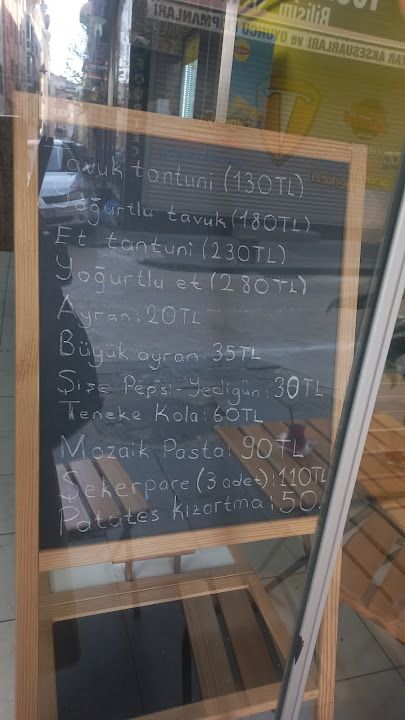 Bilişim
AR AKSESUARLARI ve OYUNCU EKİPMANLARI
Tavuk tantuni (130TL)
Yoğurtlu tavuk (180TL)
Et tantuni (230TL)
Yoğurtlu et (280TL)
Ayran: 20TL
Büyük ayran: 35TL
Şişe Pepsi-Yedigün: 30TL
Teneke Kola: 60TL
Mozaik Pasta: 90TL
Şekerpare (3 adet): 110TL
Patates kızartma: 50